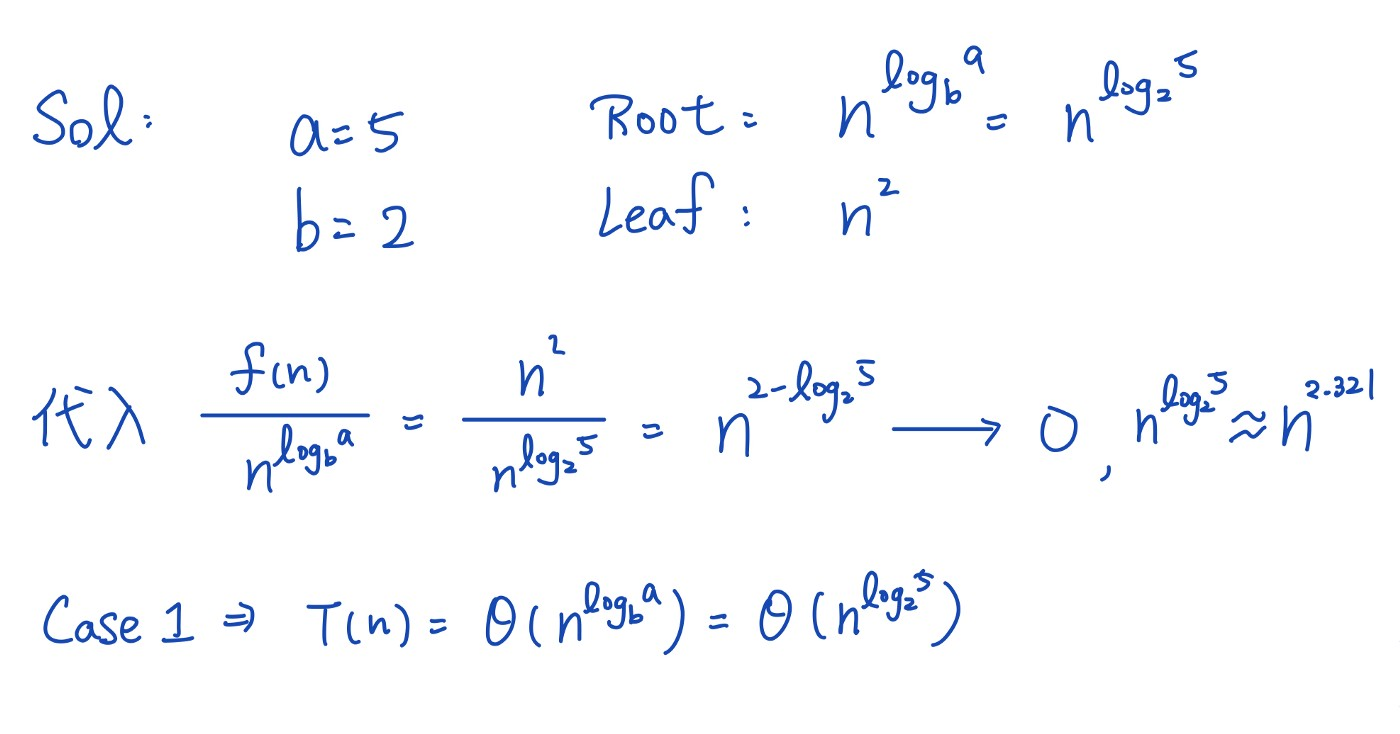 Sol: a=5 Root: n^{log_b a} = n^{log_2 5}
b=2 Leaf: n^2
代入 f(n)/n^{log_b a} = n^2/n^{log_2 5} = n^{2-log_2 5} ⟶ 0, n^{log_2 5} ≈ n^{2.321}
Case 1 ⇒ T(n) = θ(n^{log_b a}) = θ(n^{log_2 5})